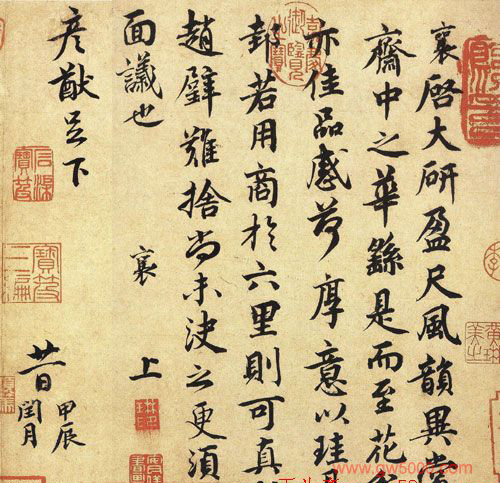 襄啓大研盈尺風韻異常
齋中之華繇是而至花
亦佳品感荷厚意以珪
邽若用商於六里則可真
趙璧難捨尚未決之更須
面議也 襄 上
彥猷足下
廿一日 甲辰
閏月
www.gw5000.com